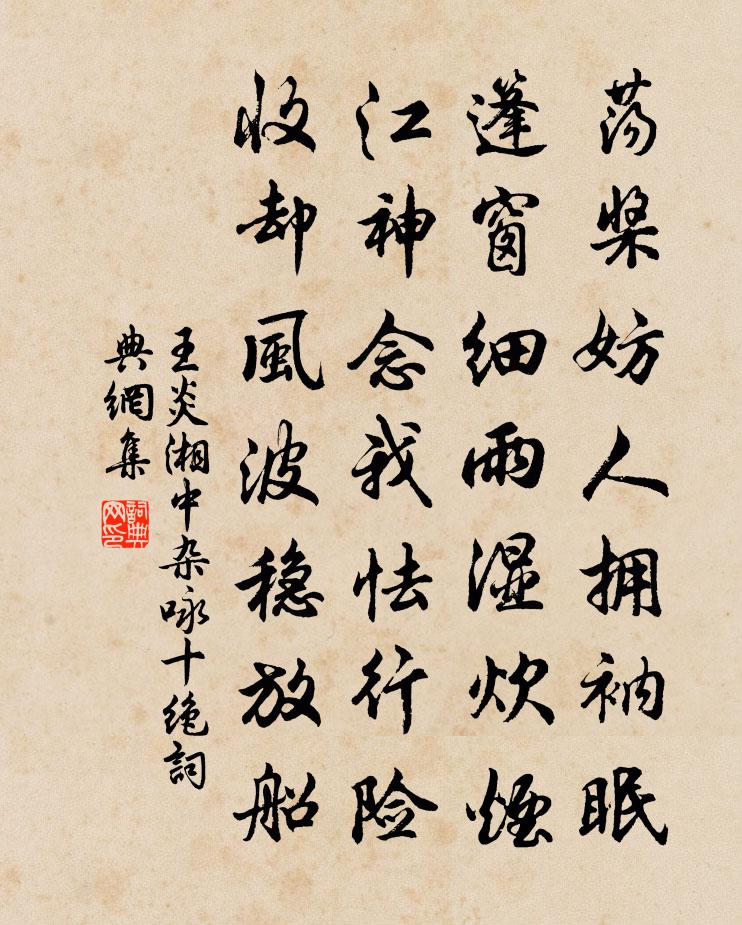 荡桨妨人拥衲眠
蓬窗细雨湿炊烟
江神念我怯行险
收却風波稳放船
王炎湘中杂咏十绝詞
典網集
詞典网印